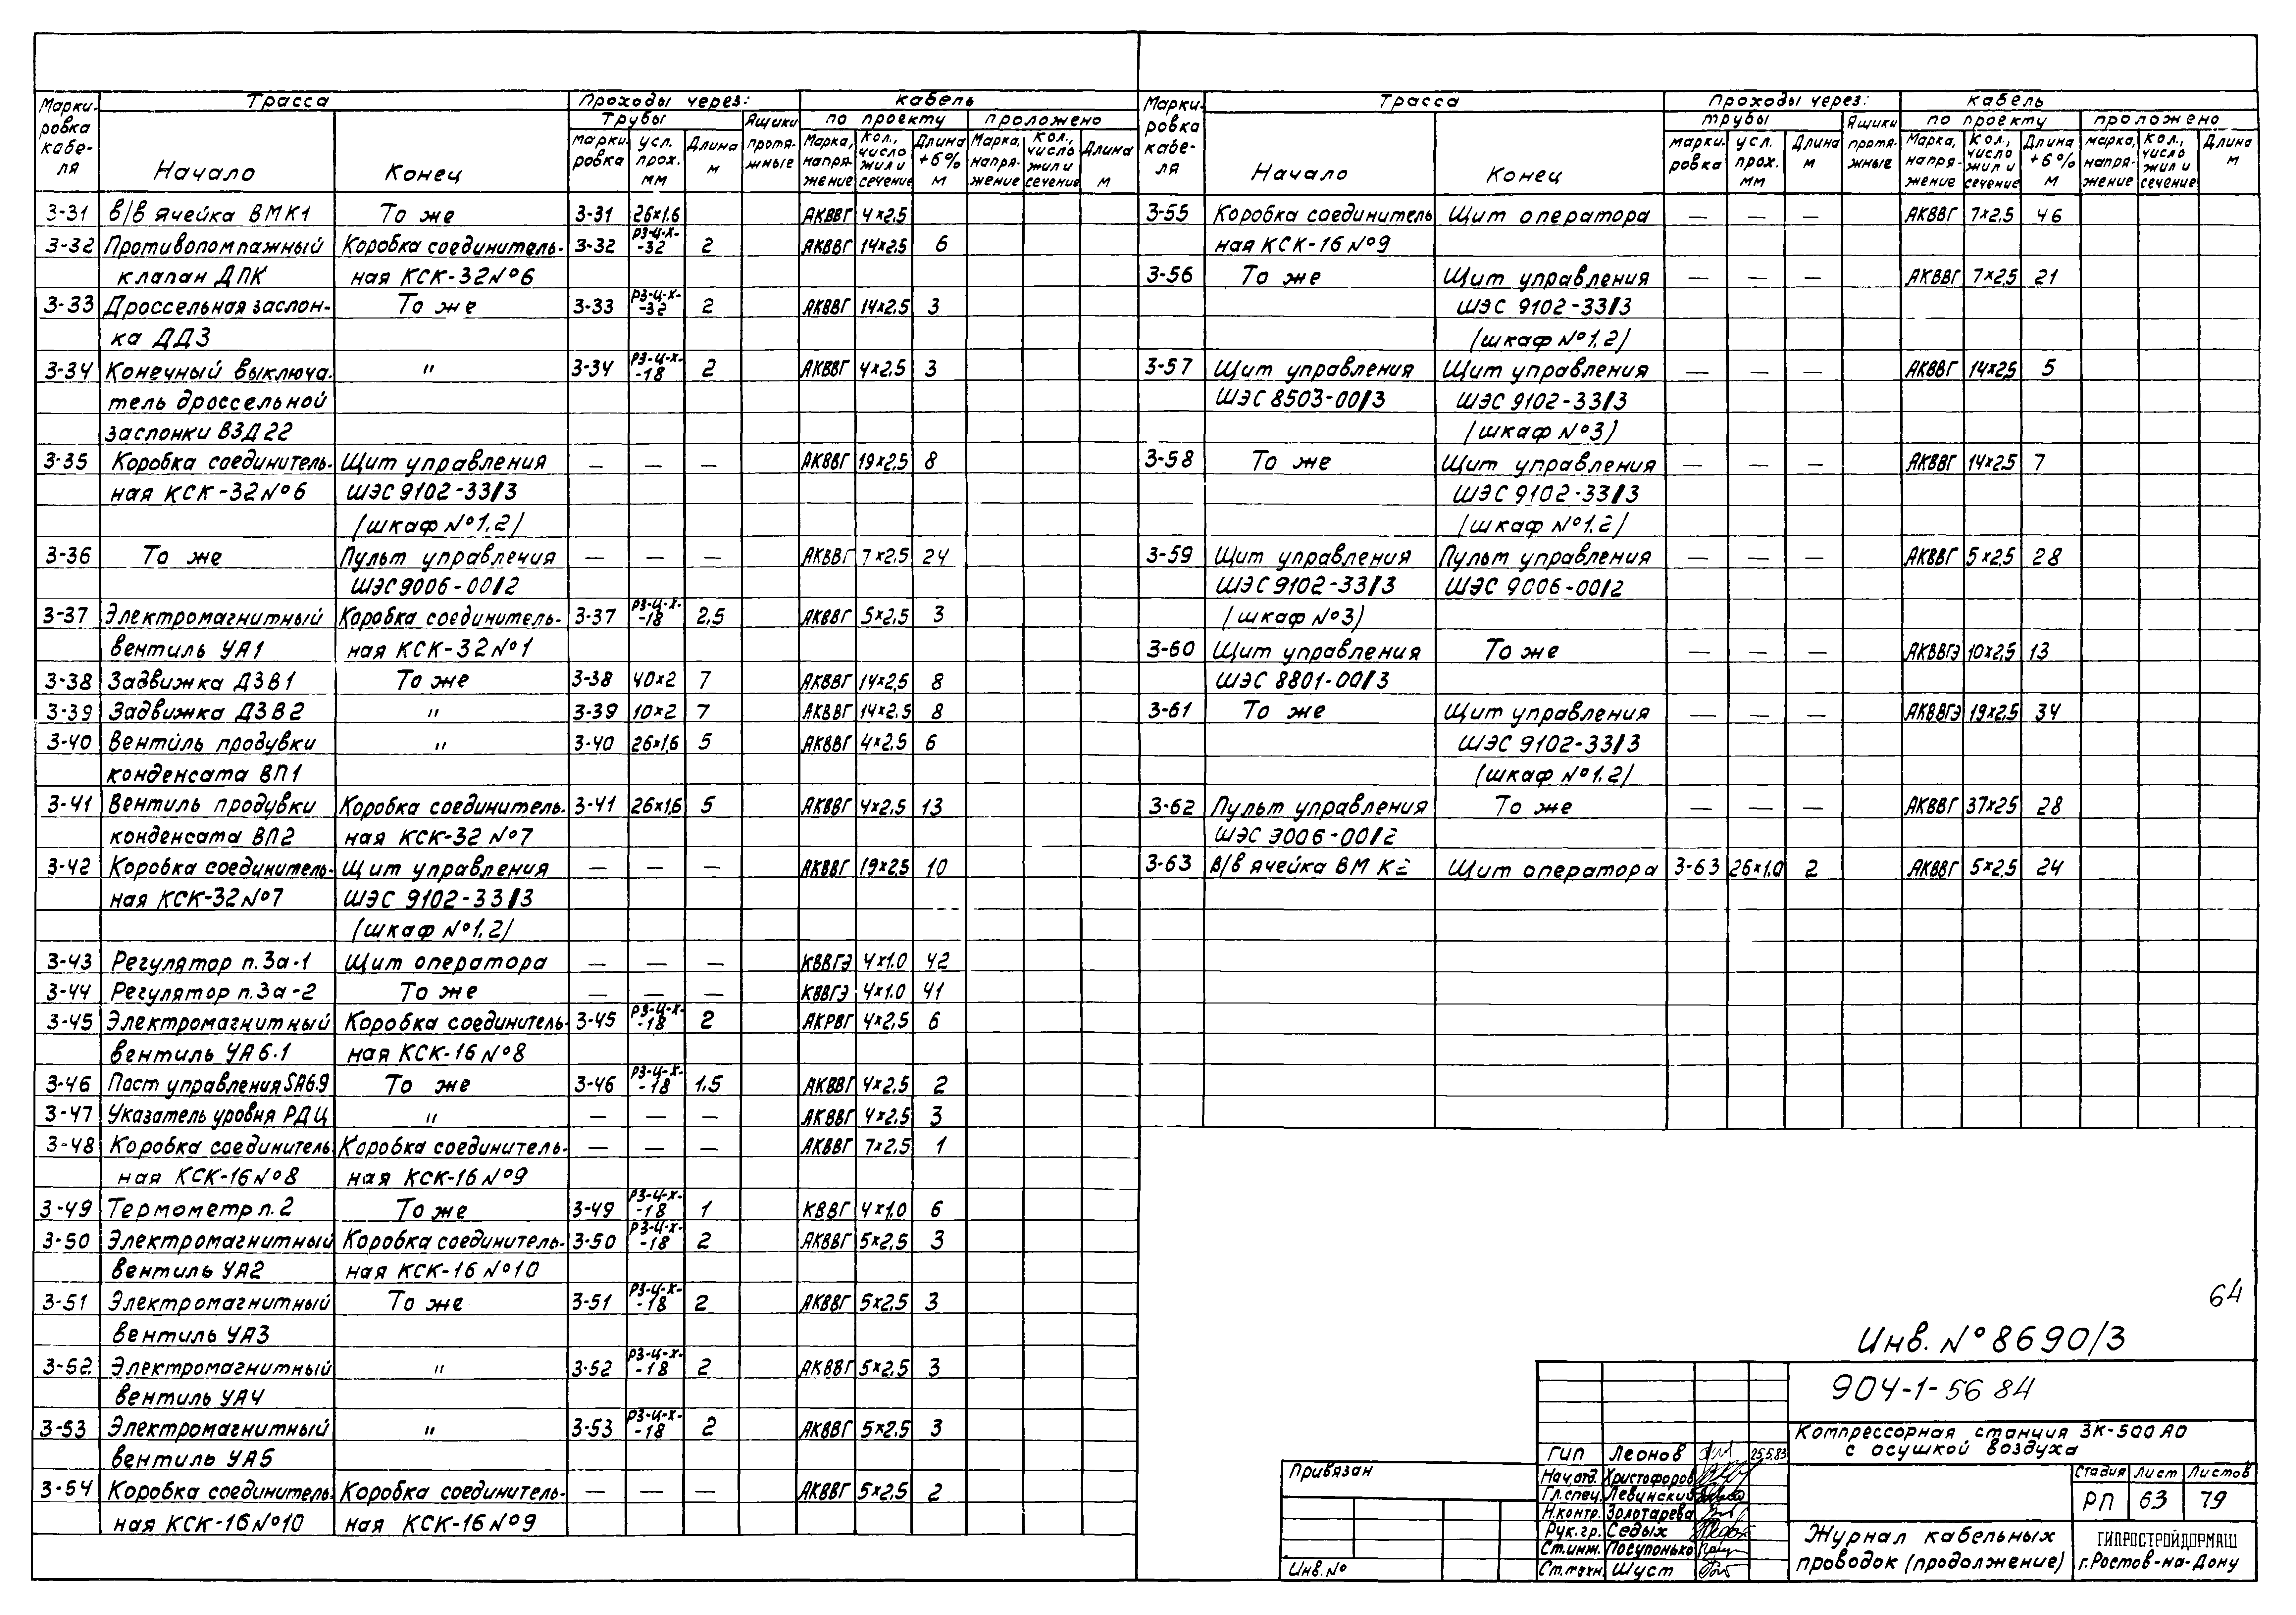 Марки-ровка кабе-ля | Трасса | Проходы через: | кабель
Трубы | Ящики протя-жные | по проекту | проложено
Начало | Конец | марки-ровка | усл. прох. мм | Длина м | Марка, напря-жение | Кол., число жил и сечение | Длина +6% м | Марка, напря-жение | Кол., число жил и сечение | Длина м
3-31 | в/в ячейка ВМК1 | То же | 3-31 | 26×1,6 | АКВВГ | 4×2,5
3-32 | Противопомпажный | Коробка соединитель- | 3-32 | РЗ-Ц-Х-32 | 2 | АКВВГ | 14×2,5 | 6
клапан ДПК | ная КСК-32№6
3-33 | Дроссельная заслон- | То же | 3-33 | РЗ-Ц-Х-32 | 2 | АКВВГ | 14×2,5 | 3
ка ДДЗ
3-34 | Конечный выключа- | " | 3-34 | РЗ-Ц-Х-18 | 2 | АКВВГ | 4×2,5 | 3
тель дроссельной
заслонки ВЗД22
3-35 | Коробка соединитель- | Щит управления | — | — | — | АКВВГ | 19×2,5 | 8
ная КСК-32№6 | ШЭС 9102-33/3
(шкаф №1,2)
3-36 | То же | Пульт управления | — | — | — | АКВВГ | 7×2,5 | 24
ШЭС9006-00/2
3-37 | Электромагнитный | Коробка соединитель- | 3-37 | РЗ-Ц-Х-18 | 2,5 | АКВВГ | 5×2,5 | 3
вентиль УА1 | ная КСК-32№1
3-38 | Задвижка ДЗВ1 | То же | 3-38 | 40×2 | 7 | АКВВГ | 14×2,5 | 8
3-39 | Задвижка ДЗВ2 | " | 3-39 | 10×2 | 7 | АКВВГ | 14×2,5 | 8
3-40 | Вентиль продувки | " | 3-40 | 26×1,6 | 5 | АКВВГ | 4×2,5 | 6
конденсата ВП1
3-41 | Вентиль продувки | Коробка соединитель- | 3-41 | 26×1,6 | 5 | АКВВГ | 4×2,5 | 13
конденсата ВП2 | ная КСК-32 №7
3-42 | Коробка соединитель- | Щит управления | — | — | — | АКВВГ | 19×2,5 | 10
ная КСК-32№7 | ШЭС 9102-33/3
(шкаф №1,2)
3-43 | Регулятор п.3а-1 | Щит оператора | — | — | — | КВВГЭ | 4×1.0 | 42
3-44 | Регулятор п.3а-2 | То же | — | — | — | КВВГЭ | 4×1.0 | 41
3-45 | Электромагнитный | Коробка соединитель- | 3-45 | РЗ-Ц-Х-18 | 2 | АКРВГ | 4×2,5 | 6
вентиль УА6.1 | ная КСК-16№8
3-46 | Пост управления SA6.9 | То же | 3-46 | РЗ-Ц-Х-18 | 1,5 | АКВВГ | 4×2,5 | 2
3-47 | Указатель уровня РДЦ | " | — | — | — | АКВВГ | 4×2,5 | 3
3-48 | Коробка соединитель- | Коробка соединитель- | — | — | — | АКВВГ | 7×2,5 | 1
ная КСК-16№8 | ная КСК-16№9
3-49 | Термометр п.2 | То же | 3-49 | РЗ-Ц-Х-18 | 1 | КВВГ | 4×1,0 | 6
3-50 | Электромагнитный | Коробка соединитель- | 3-50 | РЗ-Ц-Х-18 | 2 | АКВВГ | 5×2,5 | 3
вентиль УА2 | ная КСК-16№10
3-51 | Электромагнитный | То же | 3-51 | РЗ-Ц-Х-18 | 2 | АКВВГ | 5×2,5 | 3
вентиль УА3
3-52. | Электромагнитный | " | 3-52 | РЗ-Ц-Х-18 | 2 | АКВВГ | 5×2,5 | 3
вентиль УА4
3-53 | Электромагнитный | " | 3-53 | РЗ-Ц-Х-18 | 2 | АКВВГ | 5×2,5 | 3
вентиль УА5
3-54 | Коробка соединитель- | Коробка соединитель- | — | — | — | АКВВГ | 5×2,5 | 2
ная КСК-16№10 | ная КСК-16№9
Марки-ровка кабе-ля | Трасса | Проходы через: | кабель
трубы | Ящики протя-жные | по проекту | проложено
Начало | Конец | марки-ровка | усл. прох. мм | Длина м | Марка, напря-жение | Кол., число жил и сечение | Длина +6% м | марка, напря-жение | Кол., число жил и сечение | Длина м
3-55 | Коробка соединитель | Щит оператора | — | — | — | АКВВГ | 7×2,5 | 46
ная КСК-16№9
3-56 | То же | Щит управления | — | — | — | АКВВГ | 7×2,5 | 21
ШЭС 9102-33/3
(шкаф №1,2)
3-57 | Щит управления | Щит управления | — | — | — | АКВВГ | 14×2,5 | 5
ШЭС 8503-00/3 | ШЭС 9102-33/3
(шкаф №3)
3-58 | То же | Щит управления | — | — | — | АКВВГ | 14×2,5 | 7
ШЭС 9102-33/3
(шкаф №1,2)
3-59 | Щит управления | Пульт управления | — | — | — | АКВВГ | 5×2,5 | 28
ШЭС 9102-33/3 | ШЭС 9006-00/2
(шкаф №3)
3-60 | Щит управления | То же | — | — | — | АКВВГЭ | 10×2,5 | 13
ШЭС 8801-00/3
3-61 | То же | Щит управления | — | — | — | АКВВГЭ | 19×2,5 | 34
ШЭС 9102-33/3
(шкаф №1,2)
3-62 | Пульт управления | То же | — | — | — | АКВВГ | 37×2,5 | 28
ШЭС 9006-00/2
3-63 | В/в ячейка ВМ К2 | Щит оператора | 3-63 | 26×1.0 | 2 | АКВВГ | 5×2,5 | 24
64
Инв. №8690/3
904-1-56 84
Компрессорная станция 3К-500А0
с осушкой воздуха
ГИП Леонов 25.5.83
Нач.отд. Христофоров
Гл.спец. Левинский
Н.контр. Золотарева
Рук.гр. Седых
Ст.инж. Посупонько
Ст.техн. Шуст
Привязан
Инв.№
Стадия | Лист | Листов
РП | 63 | 79
Журнал кабельных
проводок (продолжение)
ГИПРОСТРОЙДОРМАШ
г.Ростов-на-Дону